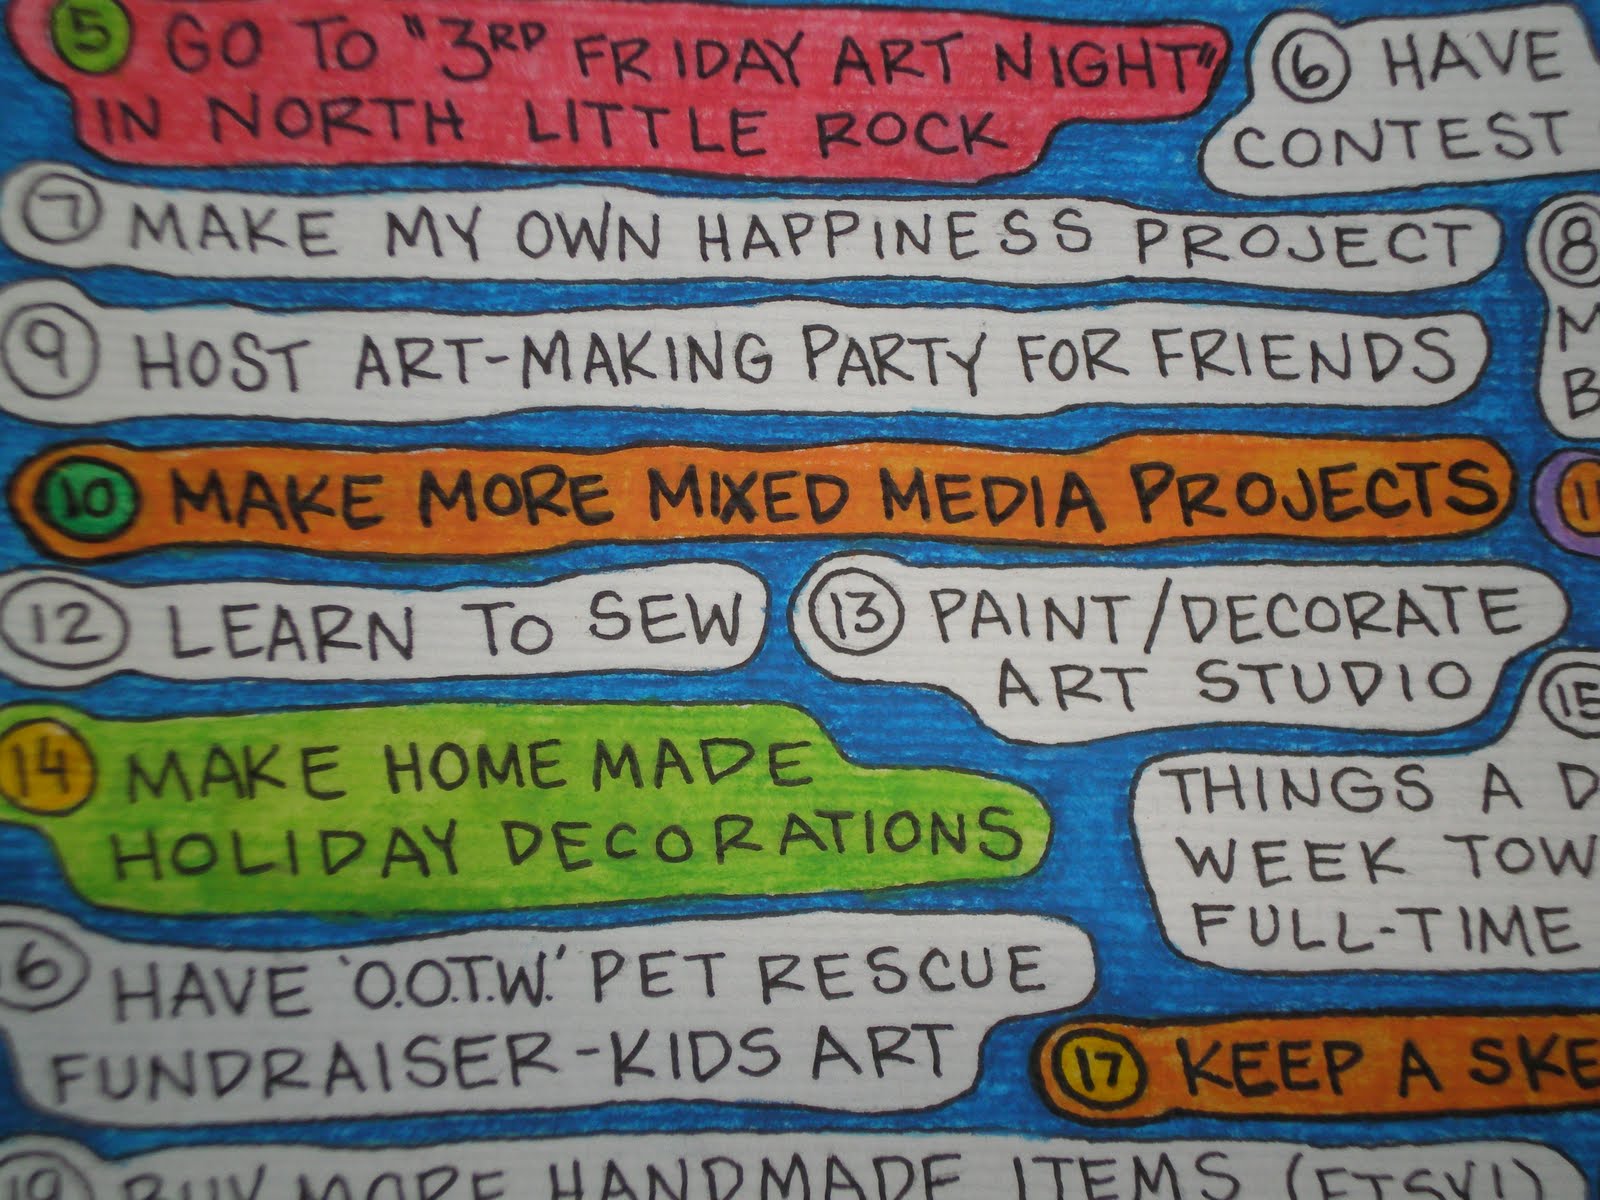 5 GO TO "3RD FRIDAY ART NIGHT"
IN NORTH LITTLE ROCK
6 HAVE
CONTEST
7 MAKE MY OWN HAPPINESS PROJECT
8
M
B
9 HOST ART-MAKING PARTY FOR FRIENDS
10 MAKE MORE MIXED MEDIA PROJECTS
11
12 LEARN TO SEW
13 PAINT/DECORATE
ART STUDIO
14 MAKE HOMEMADE
HOLIDAY DECORATIONS
15
THINGS A D
WEEK TOW
FULL-TIME
16 HAVE 'O.O.T.W.' PET RESCUE
FUNDRAISER-KIDS ART
17 KEEP A SKE
19 BUY MORE HANDMADE ITEMS (ETSY!)